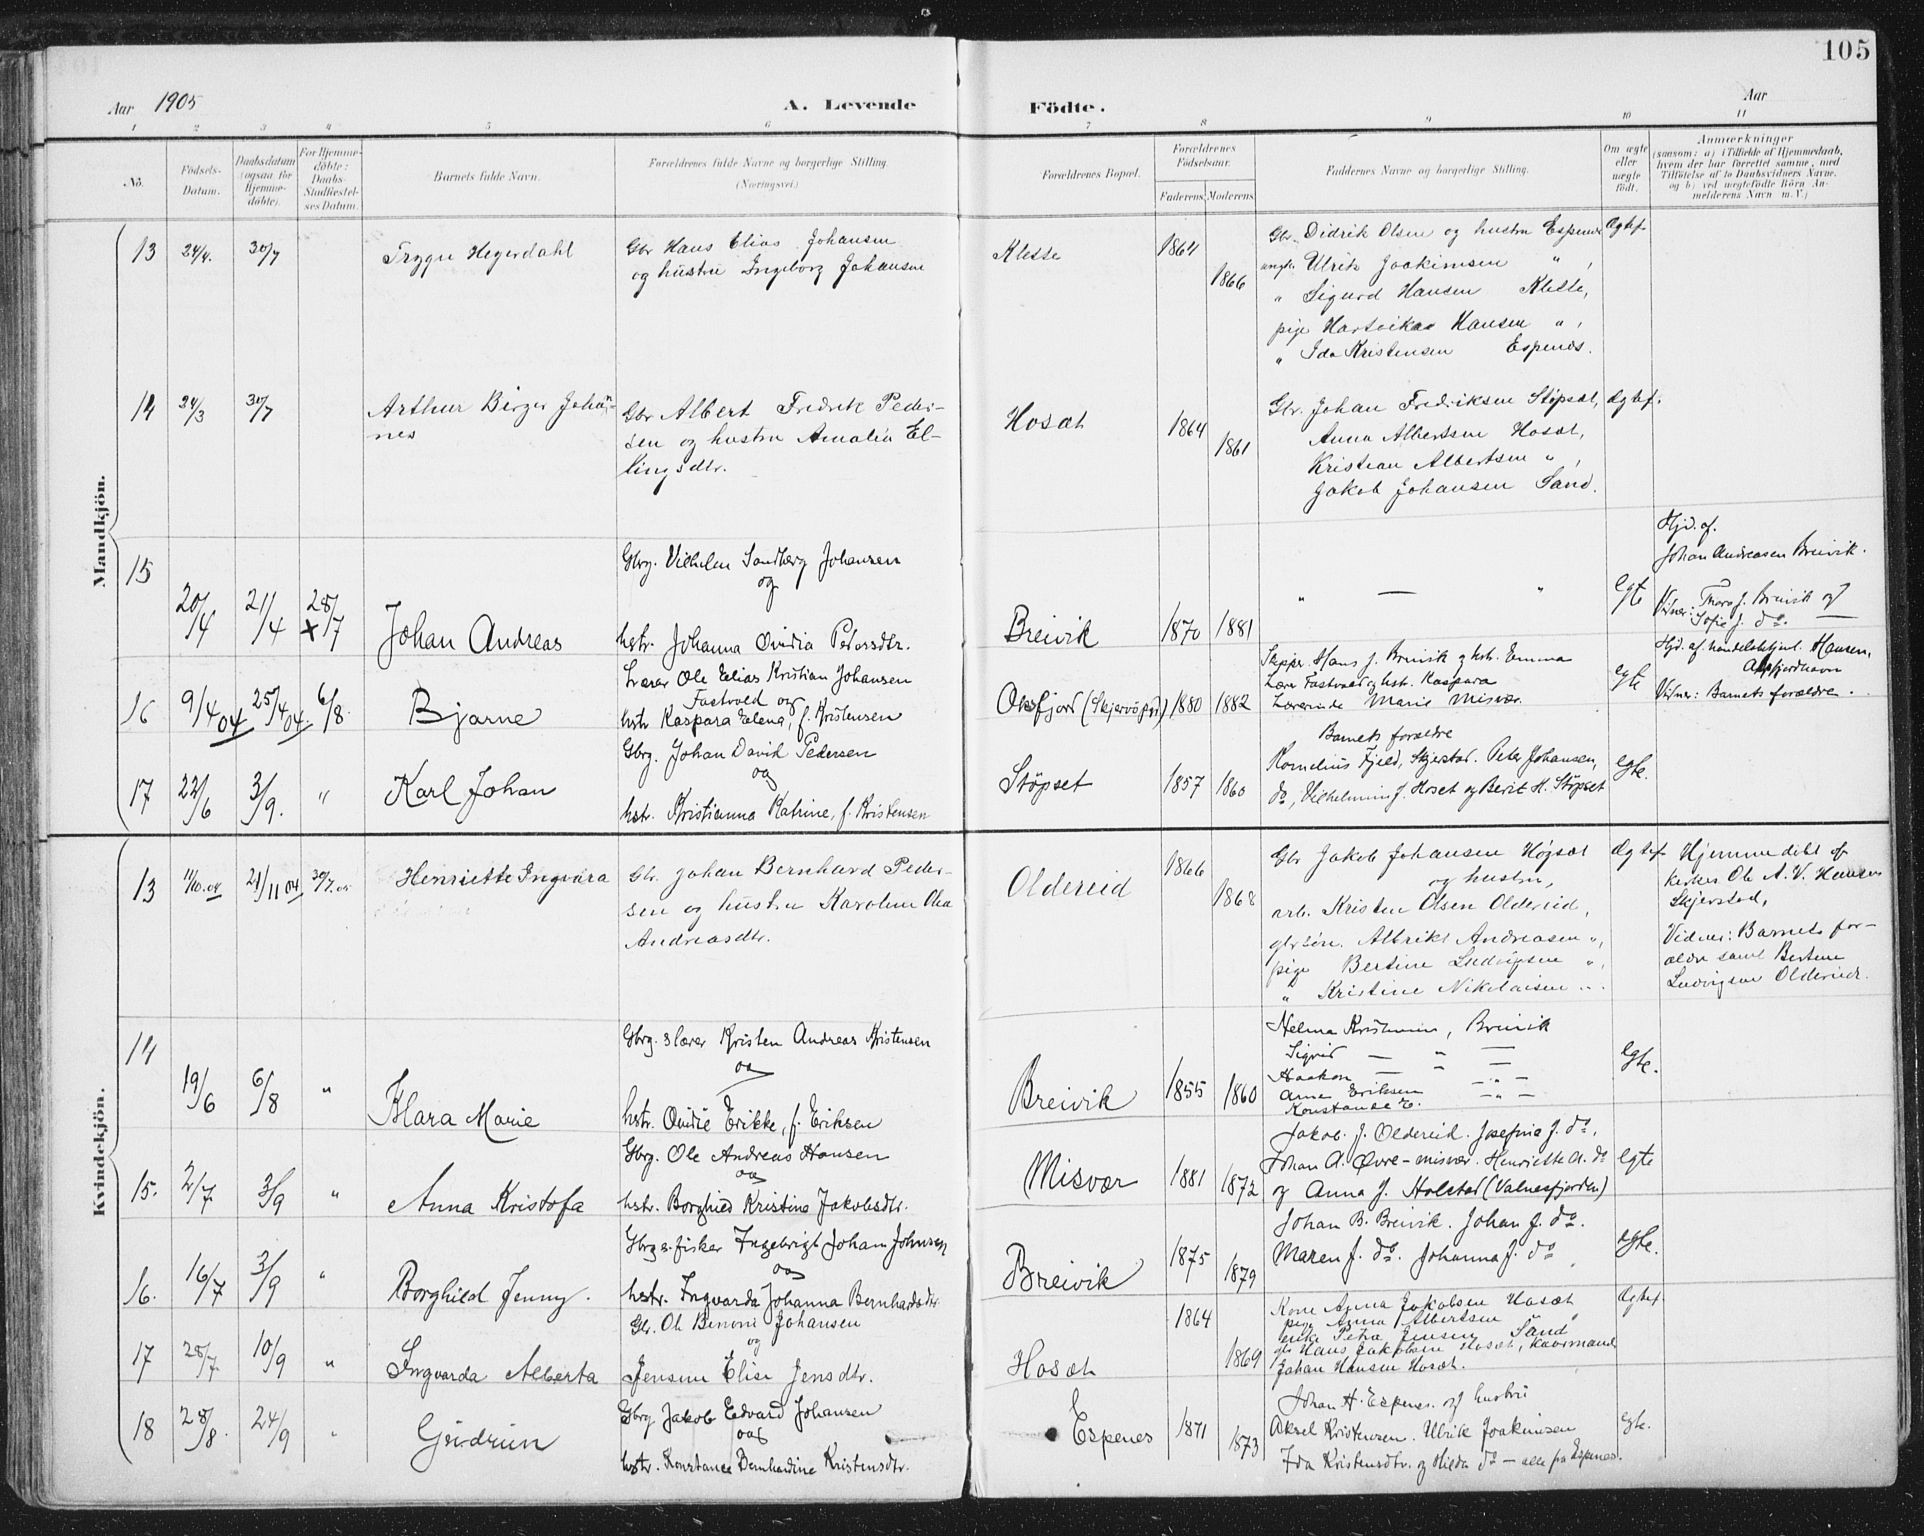 105
Aar 1905
A. Levende
Födte.
Aar
1 2 3 4 5 6 7 8 9 10 11
No.
Födsels-Datum.
Daabsdatum (ogsaa for Hjemme-döbte).
For Hjemme-döbte: Daabs-Stadfæstel-ses Datum.
Barnets fulde Navn.
Forældrenes fulde Navne og borgerlige Stilling.
(Næringsvei.)
Forældrenes Bopæl.
Forældrenes Födselsaar.
Faderens Moderens
Faddernes Navne og borgerlige Stilling.
Om ægte eller uægte födt.
Anmærkninger
(saasom: a) i Tilfælde af Hjemmedaab,
hvem der har forrettet samme, med
Tilföielse af to Daabsvidners Navne,
og b) ved uægtefödte Börn An-
melderens Navn m. V.)
Mandkjön.
13 24/4. 30/7 Trygve Hegerdahl
Gbr Hans Elias Johansen
og hustru Ingeborg Johansen
Klette 1864 1866
Gbr. Didrik Olsen og hustru Espenes
ungk. Ulrik Joakimsen " ,
" Sigurd Hansen Klette,
pige Hartvikas Hansen " ,
" Ida Kristensen Espenes.
Ægtef.
14 24/3 30/7 Arthur Birger Johan-
nes
Gbr Albert Fredrik Peder-
sen og hustru Amalia El-
lingsdtr.
Hosæt 1864 1861
Gbr. Johan Fredriksen Støpsæt,
Anna Albertsen Hosæt,
Kristian Albertsen " ,
Jakob Johansen Sand.
Ægtef.
15 20/4 21/4 28/7 Johan Andreas
Gbrg. Vilhelm Sandberg Johansen
og
hstr. Johanna Ovidia Pedersdtr.
Breivik 1870 1881
" — "
egte
Hjd. af.
Johan Andreasen Breivik.
Vidner: Thora J. Breivik og
Sofie J. do. —
16 9/4 04 25/4 04. 6/8 Bjarne
Lærer Ole Elias Kristian Johansen
Fastvold og
hstr Kaspara Elena, f. Kristensen
Oksfjord (Skjervö pgd) 1880 1882
Skipper Hans J. Breivik og hst. Emma
Lærer Fastvold og hst. Kaspara
Lærerinde Marie Misvær.
Barnets forældre
egte
Hjd. af handelsbetjent Hansen,
Vidner: Barnets forældre.
17 22/6 3/9. " Karl Johan
Gbrg. Johan David Pedersen
og
hstr. Kristianna Katrine, f. Kristensen
Støpset 1857 1860
Kornelius Fjeld, Skjerstad. Peter Johansen,
do, Vilhelmine J. Hoset og Berit H. Støpset
egte.
Kvindekjön.
13 11/10.04 21/11 04 30/7.05 Henriette Ingvara
Gbr. Johan Bernhard Peder-
sen og hustru Karoline Olea
Andreasdtr.
Oldereid 1866 1868
Gbr Jakob Johansen Høgsæt
og hustru,
arb. Kristen Olsen Oldereid,
gbrsøn. Albrikt Andreasen ",
pige Bertine Ludvigsen ",
" Kristine Nikolaisen "
Ægtef
Hjemmedøbt af
kirkes Ole A. V. Hansen
Skjerstad,
Vidner: Barnets for-
ældre samt Bertine
Ludvigsen Oldereid.
14 19/6 6/8 " Klara Marie
Gbrg. s lærer Kristen Andreas Kristensen
og
hstr. Ovidie Erikke, f. Eriksen
Breivik 1855 1860
Helma Kristensen, Breivik
Sigrid — " —
Haakon — " —
Anna Eriksen — " —
Konstanse E. — " —
egte.
15. 2/7 3/9 " Anna Kristofa
Gbrg. Ole Andreas Hansen
og
hstr. Borghild Kristine Jakobsdtr.
Misvær 1881 1872
Jakob. J. Oldereid. Josefine J. do,
Johan A. Øvre-misvær. Henriette A. do
og Anna J. Holstad (Valnesfjorden)
egte
16. 16/7 3/9 " Borghild Jenny.
Gbrg s. fisker Ingebrigt Johan Johnsen
og
hstr. Ingvarda Johanna Bernhardsdtr.
Breivik 1875 1879
Johan B. Breivik. Johan J. do.
Maren J. do. Johanna J. do
egte.
17 28/7. 10/9 " Ingvarda Alberta
Gbr. Ole Benoni Johansen
og
Jensine Elise Jensdtr.
Hosæt 1864 1869
Kone Anna Jakobsen Hosæt
pige Anna Albertsen "
enke Petra Jensen Sand
gbr Hans Jakobsen Hosæt, kaarmand
Johan Hansen Hosæt.
Ægtef.
18 28/8. 24/9 " Gudrun
Gbrg Jakob Edvard Johansen
og
hstr. Konstance Bernhardine Kristensdtr.
Espenes 1871 1873
Johan H. Espenes og hustru
Aksel Kristensen. Ulrik Joakimsen
Ida Kristensdtr. og Hilda do — alle fra Espenes.
egte.